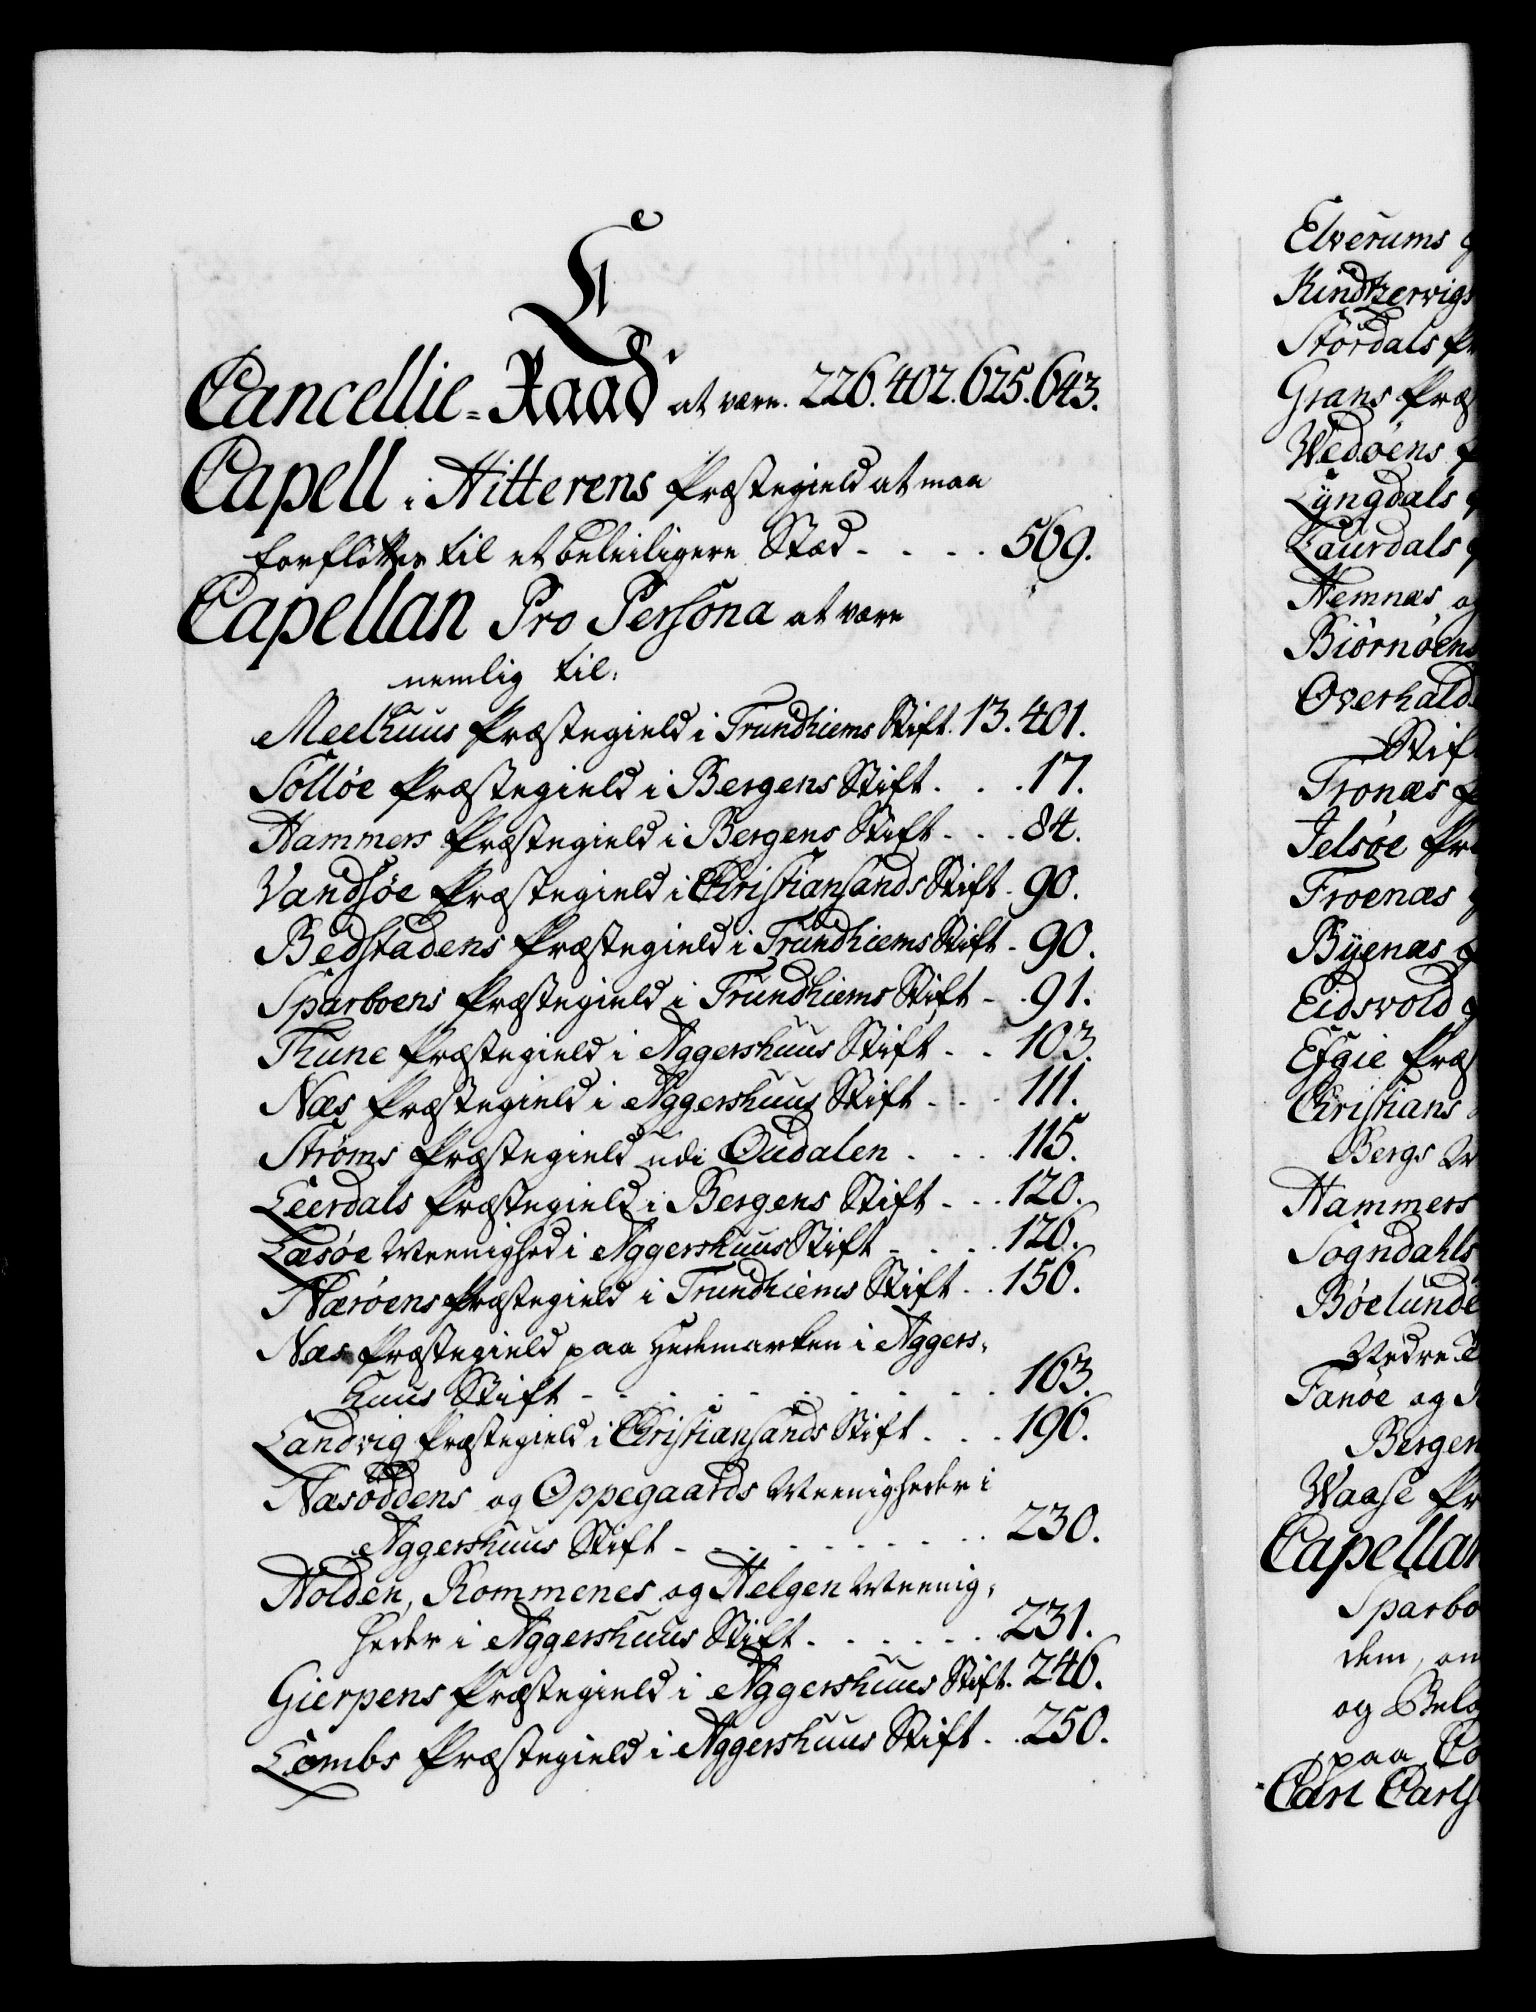 C
Cancellie-Raad at være. 226.402.625.643.
Capell i Hitterens Præstegield at maa
forflöttes til et beleiligere Stæd - . . . 569.
Capellan Pro Persona at være
nemlig til:
Meelhuus Præstegield i Trundhiems Stift. 13.401.
Solløe Præstegield i Bergens Stift . . . 17.
Hammers Præstegield i Bergens Stift - . . 84.
Vandsøe Præstegield i Christiansands Stift - 90.
Bedstadens Præstegield i Trundhiems Stift - 90.
Sparboens Præstegield i Trundhiems Stift - . 91.
Thune Præstegield i Aggershuus Stift - . . 103.
Næs Præstegield i Aggershuus Stift - . . 111.
Strøms Præstegield udi Oudalen . . . 115.
Leerdals Præstegield i Bergens Stift - . . 120.
Læsøe Meenighed i Aggershuus Stift - . . . 126.
Nærøens Præstegield i Trundhiems Stift . . 156.
Næs Præstegield paa Hedemarken i Aggers-
huus Stift - . . . . . . . . . 163.
Landvig Præstegield i Christiansands Stift . . . 196.
Næsöddens og Oppegaards Meenigheder i
Aggershuus Stift - . . . . . . . 230.
Holden, Rommenes og Helgen Meenig-
heder i Aggershuus Stift . . . . . . 231.
Gierpens Præstegield i Aggershuus Stift. 246.
Lombs Præstegield i Aggershuus Stift - . 250.
Elverums
Kindtzervigs
Stördals Pr
Grans Præs
Wedøens
Lyngdals
Laurdals
Hemnæs og
Biörnöens
Overhald
Stif
Tronæs
Jelsøe Pr
Froenæs
Byenæs
Eidsvold
Efgie Præs
Christians
Bergs
Hammers
Sogndahls
Bøelunde
Nedre
Fanöe og
Bergen
Waase Pr
Capellan
Sparbo
dem, on
og Bel
paa Co
Carl Carls